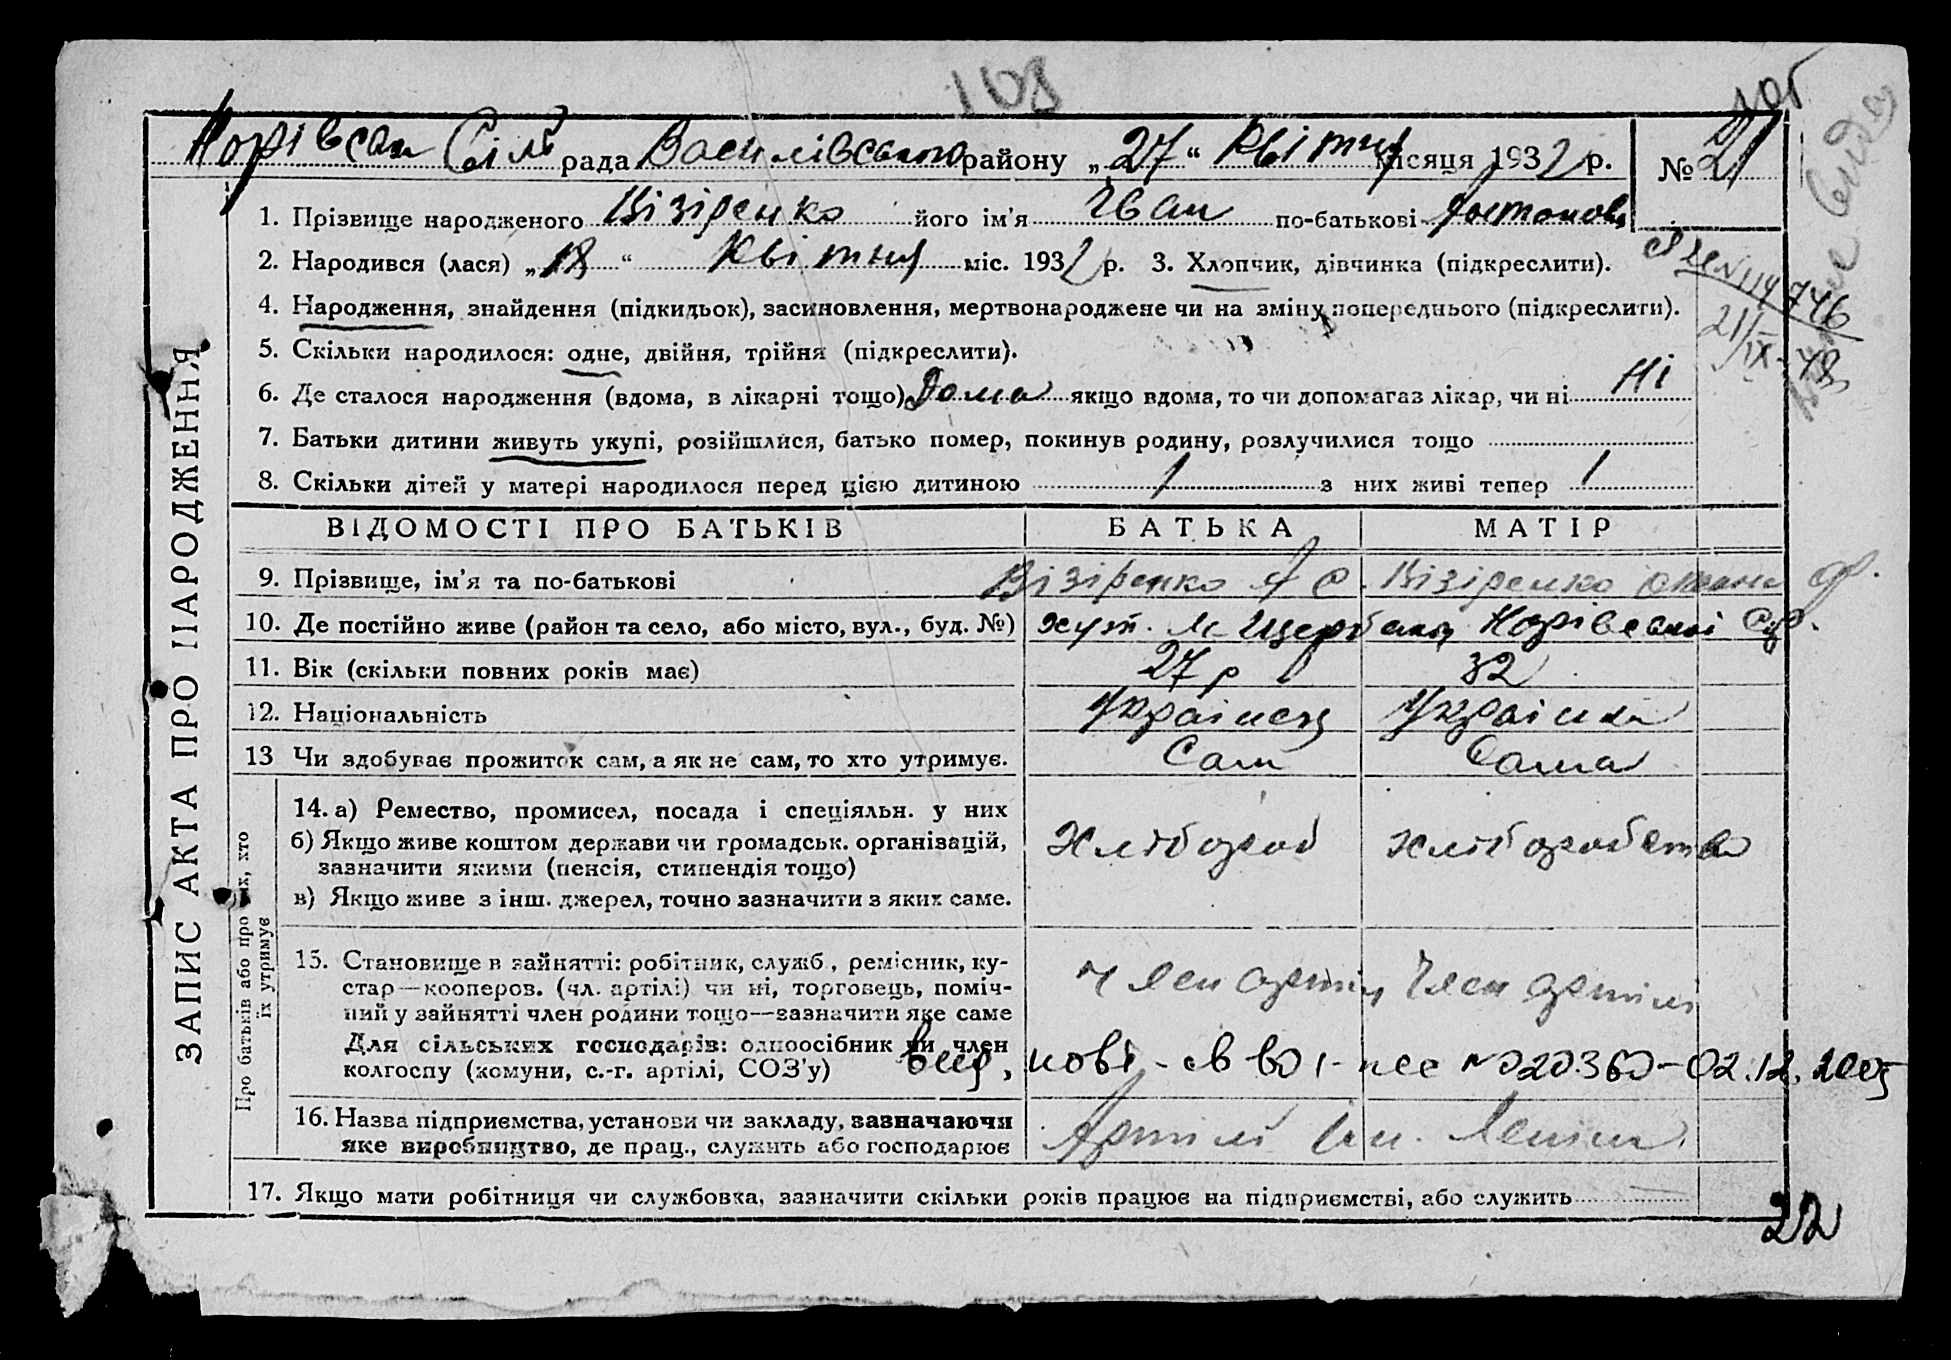 108
Норівська Сільрада Василівського району „27“ Квітня місяця 1932 р. № 21
1. Прізвище народженого Візіренко його ім'я Іван по-батькові
2. Народився (лася) „18“ Квітня міс. 1932 р. 3. Хлопчик, дівчинка (підкреслити).
4. Народження, знайдення (підкидьок), засиновлення, мертвонароджене чи на зміну попереднього (підкреслити).
5. Скільки народилося: одне, двійня, трійня (підкреслити).
21/IX-48
6. Де сталося народження (вдома, в лікарні тощо) Дома якщо вдома, то чи допомагав лікар, чи ні Ні
7. Батьки дитини живуть укупі, розійшлися, батько помер, покинув родину, розлучилися тощо
8. Скільки дітей у матері народилося перед цією дитиною 1 з них живі тепер 1
ЗАПИС АКТА ПРО НАРОДЖЕННЯ
ВІДОМОСТІ ПРО БАТЬКІВ БАТЬКА МАТІР
9. Прізвище, ім'я та по-батькові Візіренко А С. Візіренко
10. Де постійно живе (район та село, або місто, вул., буд. №) хут. Норівської с/р.
11. Вік (скільки повних років має) 27 р 32
12. Національність Українець Українка
13 Чи здобуває прожиток сам, а як не сам, то хто утримує. Сам Сама
Про батьків або про них, хто їх утримує
14. а) Ремество, промисел, посада і спеціяльн. у них
б) Якщо живе коштом держави чи громадськ. організацій, Хлібороб Хліборобство
зазначити якими (пенсія, стипендія тощо)
в) Якщо живе з інш. джерел, точно зазначити з яких саме.
15. Становище в зайнятті: робітник, служб., ремісник, ку-
стар—кооперов. (чл. артілі) чи ні, торговець, поміч- Член артілі Член артілі
ний у зайнятті член родини тощо—зазначити яке саме
Для сільських господарів: одноосібник чи член
колгоспу (комуни, с.-г. артілі, СОЗ'у) вид. 02.12.2005
16. Назва підприємства, установи чи закладу, зазначаючи Артіль ім. Леніна
яке виробництво, де прац., служить або господарює
17. Якщо мати робітниця чи службовка, зазначити скільки років працює на підприємстві, або служить
22